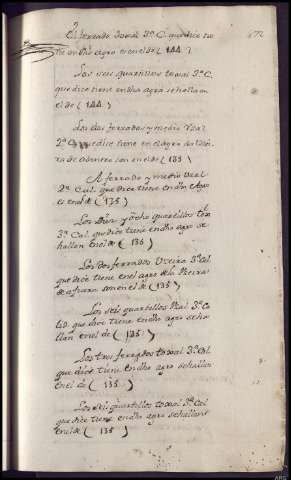 El ferrado toxal 3ª C. que dice tie
ne en dho agro es en el de (144)
Los seis quartillos toxal 3ª C.
que dice tiene en dha agra se hallan
el de (144)
Los dos ferrados y medio Vxal
2ª que dice tiene en el agro
son en el de (135)
ferrado y medio Vxal
2ª Cal. que dice tiene en dho Agro
es en el de (135)
Los Diez y ocho quartillos tox
3ª Cal. que dice tiene en dho agro se
hallan en el de (135)
Los Dos ferrados 3ª Cal
que dice tiene en el agro de la
de afuera son en el de (135)
Los seis quartillos 3ª C
que dice tiene en dho agro se ha
llan en el de (135)
Los tres ferrados toxal 3ª Cal
que dice tiene en dho agro se hallan
en el de (135)
Los seis quartillos toxal 3ª Cal
que dice tiene en dho agro se hallan
en el de (135)